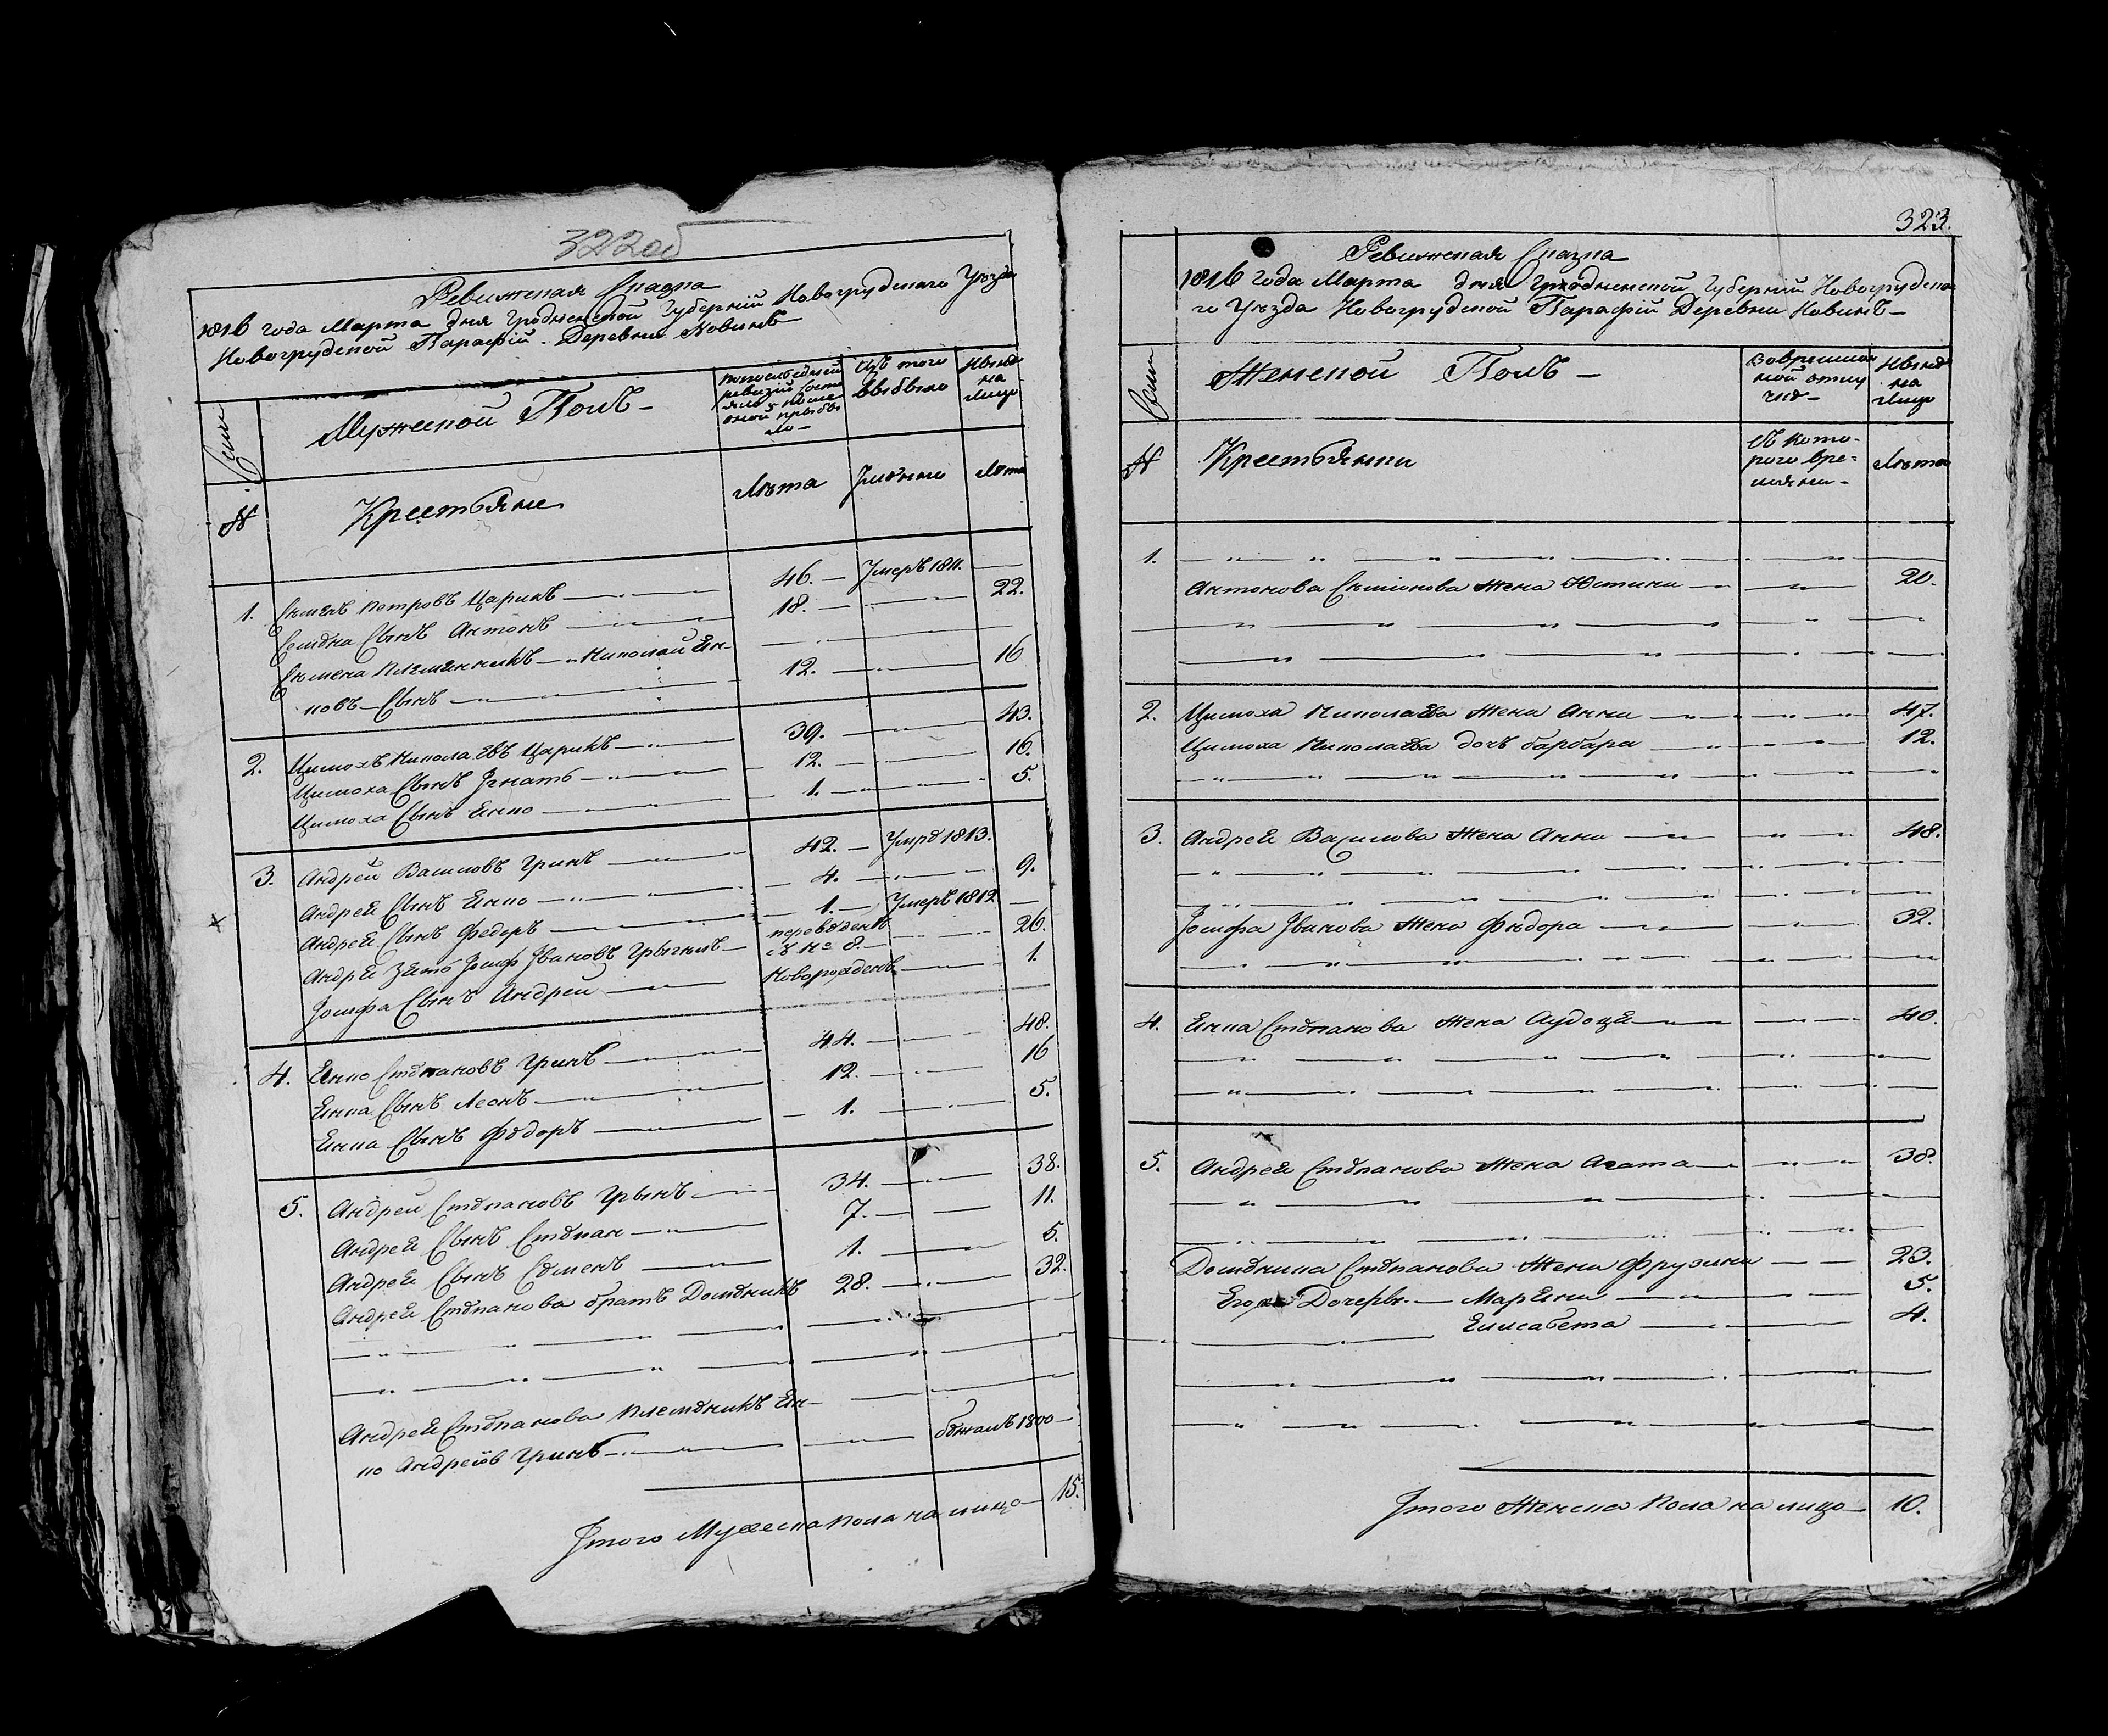 322об
Ревижская Сказка
1816 года Марта дня Гродненской Губерній Новогрудского Уѣзда
Новогрудской Парафіи Деревни Новикъ
Семи
Мужеской Полъ
По последней
ревизіи состо
яло и после
оной прыбы
ло
Изъ того
выбыло
Нынѣ
на
Лицо
№
Крестьяне
Лѣта
Лѣта
1. Сѣменъ Петровъ Царикъ 46. Умеръ 1811.
Семена Сынъ Антонъ 18. 22.
Сѣмена Племянникъ Николай Ян-
ковъ Сынъ 12. 16
2. Цимохъ Николаевъ Царикъ 39. 43.
Цимоха Сынъ Игнатъ 12. 16.
Цимоха Сынъ Янко 1. 5.
3. Андрей Васиковъ Грикъ 42. Умре 1813.
Андрея Сынъ Янко 4. 9.
Андрея Сынъ Федоръ 1. Умеръ 1812
Андрея Зять Іосифъ Ивановъ переведенъ 26.
с № 8.
Іосифа Сынъ Андрей Новорожденъ 1.
4. Янко Степановъ Грикъ 44. 48.
Янка Сынъ Леонъ 12. 16
Янка Сынъ Федоръ 1. 5.
5. Андрей Степановъ Грыкъ 34. 38.
Андрея Сынъ Степан 7. 11.
Андрея Сынъ Семенъ 1. 5.
Андрея Степанова братъ Доменикъ 28. 32.
Андрея Степанова племеникъ Ян-
ко Андреевъ Грикъ бежалъ 1800
Итого Мужеска пола на лицо 15.
323.
Ревижская Сказка
1816 года Марта дня Гродненской Губерній Новогрудска
го Уѣзда Новогрудской Парафіи Деревни Новикъ
Семи
Женской Полъ
Во временной
отлучке
Нынѣ
на
Лицо
№
Крестьянки
Съ кото-
рого вре-
мяни
Лѣта
1.
Антонова Сѣмионова Жена Юстина 20.
2. Цимоха Николаева Жена Анна 47.
Цимоха Николаева дочь барбара 12.
3. Андрея Васикова Жена Анна 48.
Іосифа Іванова Жена Федора 32.
4. Янка Степанова Жена Аудоця 40.
5. Андрея Степанова Жена Агата 38.
Доменика Степанова Жена Фрузына 23.
Его Дочерь Марьяна 5.
Елисабета 4.
Итого Женска Пола на лицо 10.